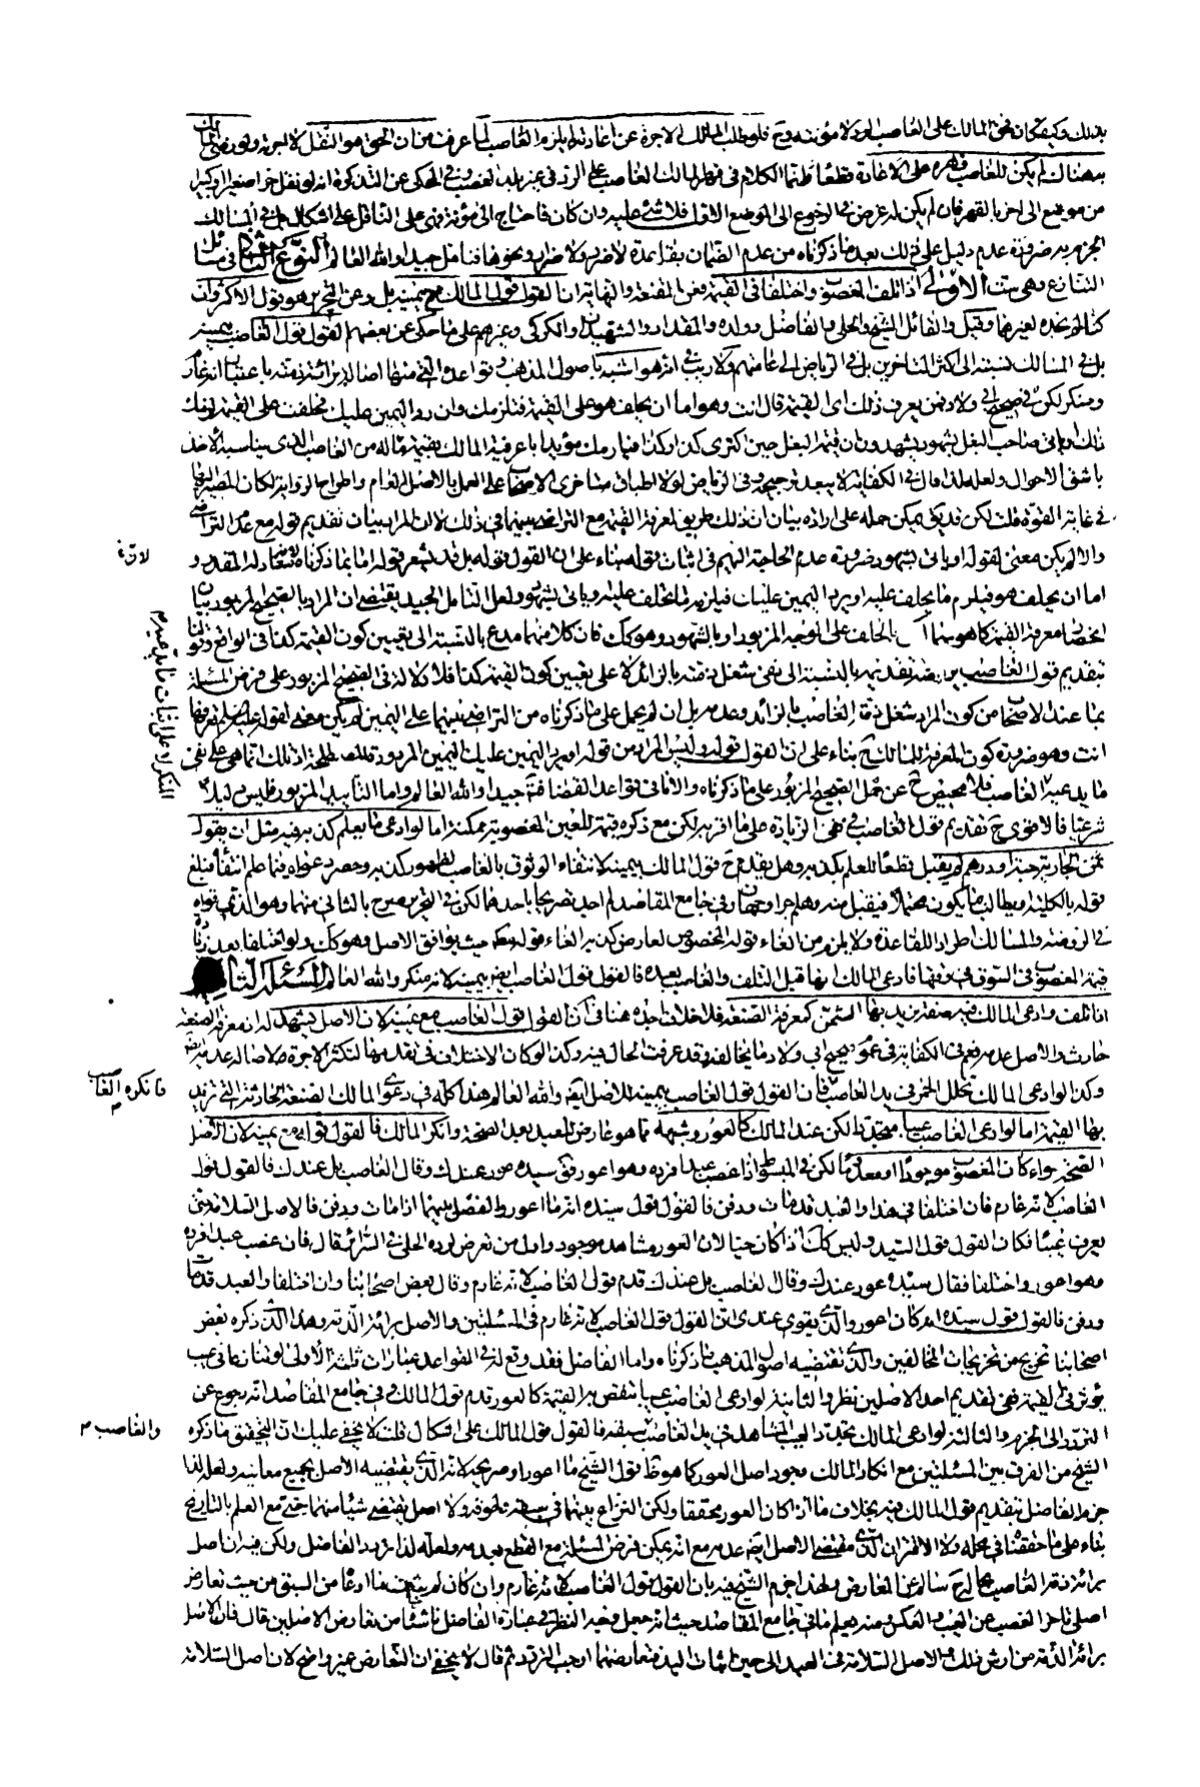 بذلك وكيف كان فحق المالك على الغاصب الرد لا مؤنته وح فلو طلب المالك الاجرة عن اعادته لم يلزم الغاصب لما عرفت من ان الحق هو النقل لا اجرته ولو رضى المالك
به هناك لم يكن للغاصب قهره على الاعادة قطعا وفى المحكى عن التذكرة انه لو نقل حرا صغيرا او كبيرا
من موضع الى اخر بالقهر فان لم يكن له غرض فى الرجوع الى الموضع الاول فلا شىء عليه وان كان فاحتاج الى مؤنة فهى على الناقل على اشكال بل فى المسالك
الجزم به ضرورة عدم دليل على ذلك بعد ما ذكرناه من عدم الضمان بقاعدة لا ضرر ولا ضرار ونحوها فتامل جيدا والله العالم النوع الثانى فى مسائل
التنازع وهى ست الاولى اذا تلف المغصوب واختلفا فى القيمة فعن المقنعة والنهاية ان القول قول المالك مع يمينه بل وعن هو قول الاكثر وان
كنا لم نجده لغيرهما وقيل والقائل الشيخ والحلى والفاضل وولده والمقداد والشهيدان والكركى وغيرهم على ما حكى عن بعضهم القول قول الغاصب بيمينه
بل فى المسالك نسبته الى اكثر المتاخرين بل فى الرياض الى عامتهم ولا ريب فى انه هو اشبه باصول المذهب وقواعده التى منها اصالة برائة ذمته باعتبار انه غارم
ومنكر لكن فى صحيح ابى ولاد فمن يعرف ذلك اى القيمة قال انت وهو اما ان يحلف هو على القيمة فتلزمك وان رد اليمين عليك فحلفت على القيمة لزمك
ذلك او ياتى صاحب البغل بشهود يشهدون ان قيمة البغل حين اكترى كذا وكذا فيلزمك مؤيدا باعرفية المالك بقيمة ماله من الغاصب الذى يناسبه الاخذ
باشق الاحوال ولعله لذا قال فى الكفاية لا يبعد ترجيحه وفى الرياض لولا اطباق متاخرى الاصحاب على العمل بالاصل العام واطراح الرواية لكان المصير اليها
فى غاية القوة قلت لكن قد يق يمكن حمله على ارادة بيان ان ذلك طريق لمعرفة القيمة مع التراضى بينهما فى ذلك لا ان المراد بيان تقديم قوله مع عدم التراضى
والا لم يكن معنى لقوله او ياتى بشهود ضرورة عدم الحاجة اليهم فى اثبات قوله بناء على ان القول قوله بل قد يشعر قوله اما بما ذكرناه
اما ان يحلف هو فيلزم ما يحلف عليه او يرد اليمين عليك فيلزمه ما تحلف عليه وياتى بشهود ولعل التامل الجيد يقتضى ان المراد بالصحيح المزبور بيان
انحصار معرفة القيمة كما هو بالحلف على الوجه المزبور او بالشهود وهو كك فان كلا منهما مدع بالنسبة الى تعيين كون القيمة كذا فى الواقع وقولنا
بتقديم قول الغاصب نريد تقديمه بالنسبة الى نفى شغل ذمته بالزائد لا على تعيين كون القيمة كذا فلا دلالة فى الصحيح المزبور على فرض المسئلة
بما عند الاصحاب من كون المراد شغل ذمة الغاصب بالزائد وعدمه بل ان لم يحمل على ما ذكرناه من التراضى بينهما على اليمين لم يكن معنى لقوله
انت وهو ضرورة كون المعرفة للمالك ح بناء على ان القول قوله وليس المراد من قوله او يرد اليمين عليك اليمين المردودة المصطلحة اذ تلك انما هى على نفى
ما يدعيه الغاصب فلا محيص ح عن حمل الصحيح المزبور على ما ذكرناه والا نافى قواعد القضاء فتامل جيدا والله العالم واما التاييد المزبور فليس دليلا
شرعيا فالاقوى ح تقديم قول الغاصب فى نفى الزيادة على ما اقر به لكن مع ذكره قيمة للعين المغصوبة ممكنة اما لو ادعى ما يعلم كذبه فيه مثل ان يقول
ثمن الجارية حبة او درهم لم يقبل قطعا للعلم بكذبه وهل يقدم ح قول المالك بيمينه لانتفاء الوثوق بالغاصب لظهور كذبه وحصر دعواه فيما علم انتفاؤه فيلغى
قوله بالكلية او يطالب بما يكون محتملا فيقبل منه وهلم جرا وجهان وفى جامع المقاصد لم اجد تصريحا باحدهما لكن فى التحرير صرح بالثانى منهما وهو الذى قواه
فى الروضة والمسالك اطرادا للقاعدة ولا يلزم من الغاء قوله المخصوص لعارض كذبه الغاء قوله مطلقا حيث يوافق الاصل وهو كك ولو اختلفا بعد زيادة
قيمة المغصوب فى السوق فى وقتها فادعى المالك انها قبل التلف والغاصب بعده فالقول قول الغاصب ايضا بيمينه لانه منكر والله العالم المسئلة الثانية
اذا تلف وادعى المالك فيه صفة يزيد بها الثمن كمعرفة الصنعة فلا خلاف اجده هنا فى ان القول قول الغاصب مع يمينه لان الاصل يشهد له ان معرفة الصنعة
حادث والاصل عدمه نعم فى الكفاية فى عموم صحيح ابى ولاد ما يخالفه وقد عرفت الحال فيه وكذا لو كان الاختلاف فى تقدمها لتكثر الاجرة لاصالة عدمه ايضا
وكذا لو ادعى المالك تخلل الخمر فى يد الغاصب فان القول قول الغاصب بيمينه للاصل ايضا والله العالم هذا كله فى دعوى المالك الصنعة الحادثة التى تزيد
بها القيمة اما لو ادعى الغاصب عيبا متجددا لكن عند المالك كالعور وشبهه مما هو عارض للعبد بعد الصحة وانكر المالك فالقول قوله مع يمينه لان الاصل
الصحة سواء كان المغصوب موجودا او معدوما لكن فى المبسوط اذا غصب عبدا فرده وهو اعور فق سيده عور عندك وقال الغاصب بل عندك فالقول قول
الغاصب لانه غارم فان اختلفا فى هذا والعبد قد مات ودفن فالقول قول سيده انه ما اعور والفصل بينهما اذا مات ودفن فالاصل السلامة حتى
يعرف عيبا فكان القول قول السيد وليس كك اذا كان حيا لان العور مشاهد موجود واول من تعرض لرده الحلى فى السرائر قال فان غصب عبدا فرده
وهو اعور واختلفا فقال سيده عور عندك وقال الغاصب بل عندك قدم قول الغاصب لانه غارم وقال بعض اصحابنا وان اختلفا والعبد قد مات
ودفن فالقول قول سيده انه ما كان اعور والذى يقوى عندى ان القول قول الغاصب لانه غارم فى المسئلتين والاصل برائة الذمة وهذا الذى ذكره بعض
اصحابنا تخريج من تخريجات المخالفين والذى تقتضيه اصول المذهب ما ذكرناه واما الفاضل فقد وقع له فى القواعد عبارات ثلث الاولى لو تنازعا فى عيب
يؤثر فى القيمة ففى تقديم احد الاصلين نظر والثانية لو ادعى الغاصب عيبا تنقص به القيمة كالعور قدم قول المالك وفى جامع المقاصد انه رجوع عن
التردد الى الجزم والثالثة لو ادعى المالك تجدد العيب المشاهد فى يد الغاصب سبقه فالقول قول المالك على اشكال قلت لا يخفى عليك ان التحقيق ما ذكره
الشيخ من الفرق بين المسئلتين مع انكار المالك وجود اصل العور كما هو ظ قول الشيخ ما اعور او صريحه لانه الذى يقتضيه الاصل بجميع معانيه ولعله لذا
جزم الفاضل بتقديم قول المالك فيه بخلاف ما اذا كان العور محققا ولكن النزاع بينهما فى سبقه ولحوقه ولا اصل يقتضى شيئا منهما حتى مع العلم بالتاريخ
بناء على ما حققناه فى محله ولا الاقتران الذى مقتضى الاصل ايضا عدمه مع انه يمكن فرض المسئلة مع القطع بعدمه ولعله لذا تردد الفاضل ولكن فيه ان اصل
برائة ذمة الغاصب بحاله ح سالم عن المعارض ولهذا جزم الشيخ فيه بان القول قول الغاصب لانه غارم وان كان لم يثبت ما ادعاه من السبق من حيث تعارض
اصلى تاخر الغصب عن العيب والعكس ومنه يعلم ما فى جامع المقاصد حيث انه جعل وجه النظر فى عبارة الفاضل ناشئا من تعارض الاصلين قال فان الاصل
برائة الذمة من ارش ذلك والاصل السلامة فى العبد الى حين اثبات اليد فتعارضهما اوجب التردد ثم قال لا يخفى ان التعارض غير واضح لان اصل السلامة
المنكر لا على اثبات ما يدعيه
فانكره الغاصب
والغاصب